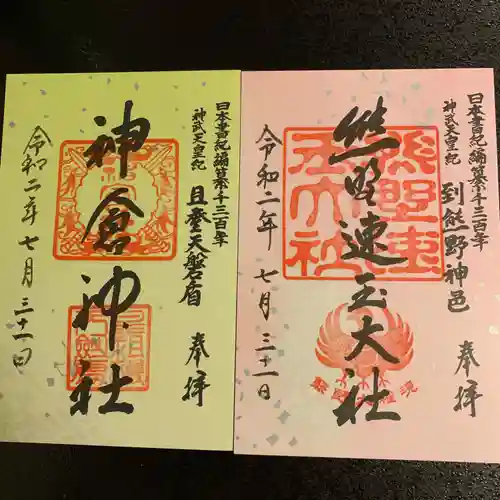 日本書紀編纂千三百年
神武天皇紀
且登天磐盾
奉拝
神倉神社
令和二年七月三十一日
日本書紀編纂千三百年
神武天皇紀
到熊野神邑
奉拝
熊野速玉大社
令和二年七月三十一日